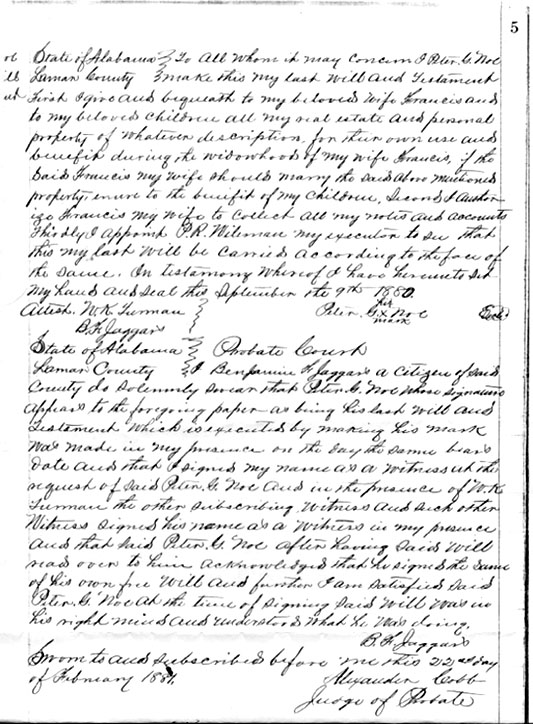 5
State of Alabama } To All Whom it may Concern I Peter. G. Noe
Lamar County } make this my last Will and Testament
First I give and bequeath to my beloved Wife Francis and
to my beloved Children all my real estate and personal
property of whatever description, for their own use and
benefit during the widowhood of my wife Francis, if the
Said Francis my wife Should marry the said above mentioned
property enure to the benefit of my Children, Second I author-
ize Francis my wife to Collect all my notes and accounts
Thirdly I appoint P.R. Wileman my executor to see that
this my last Will be Carried according to the face of
the Same. In testimony Whereof I have hereunto Set
my hand and Seal this September the 9th 1880.
his
Attest. W.K. Turman Peter. G. X Noe Seal
mark
B. F. Jaggars
State of Alabama } Probate Court
Lamar County } I Benjamin F Jaggars a Citizen of said
County do Solemnly Swear that Peter. G. Noe whose Signature
appears to the foregoing paper as being his last will and
Testament which is executed by making his mark
was made in my presence on the day the same bears
date and that I signed my name as a witness at the
request of said Peter. G Noe and in the presence of W.K
Turman the other subscribing witness and such other
Witness signed his name as a witness in my presence
and that said Peter. G. Noe after having said will
read over to him acknowledged that he signed the same
of his own free Will and further I am satisfied said
Peter. G. Noe at the time of signing said Will was in
his right mind and understood what he was doing.
B. F. Jaggars
Sworn to and subscribed before me this 22nd day
of February 1881.
Alexander Cobb
Judge of Probate